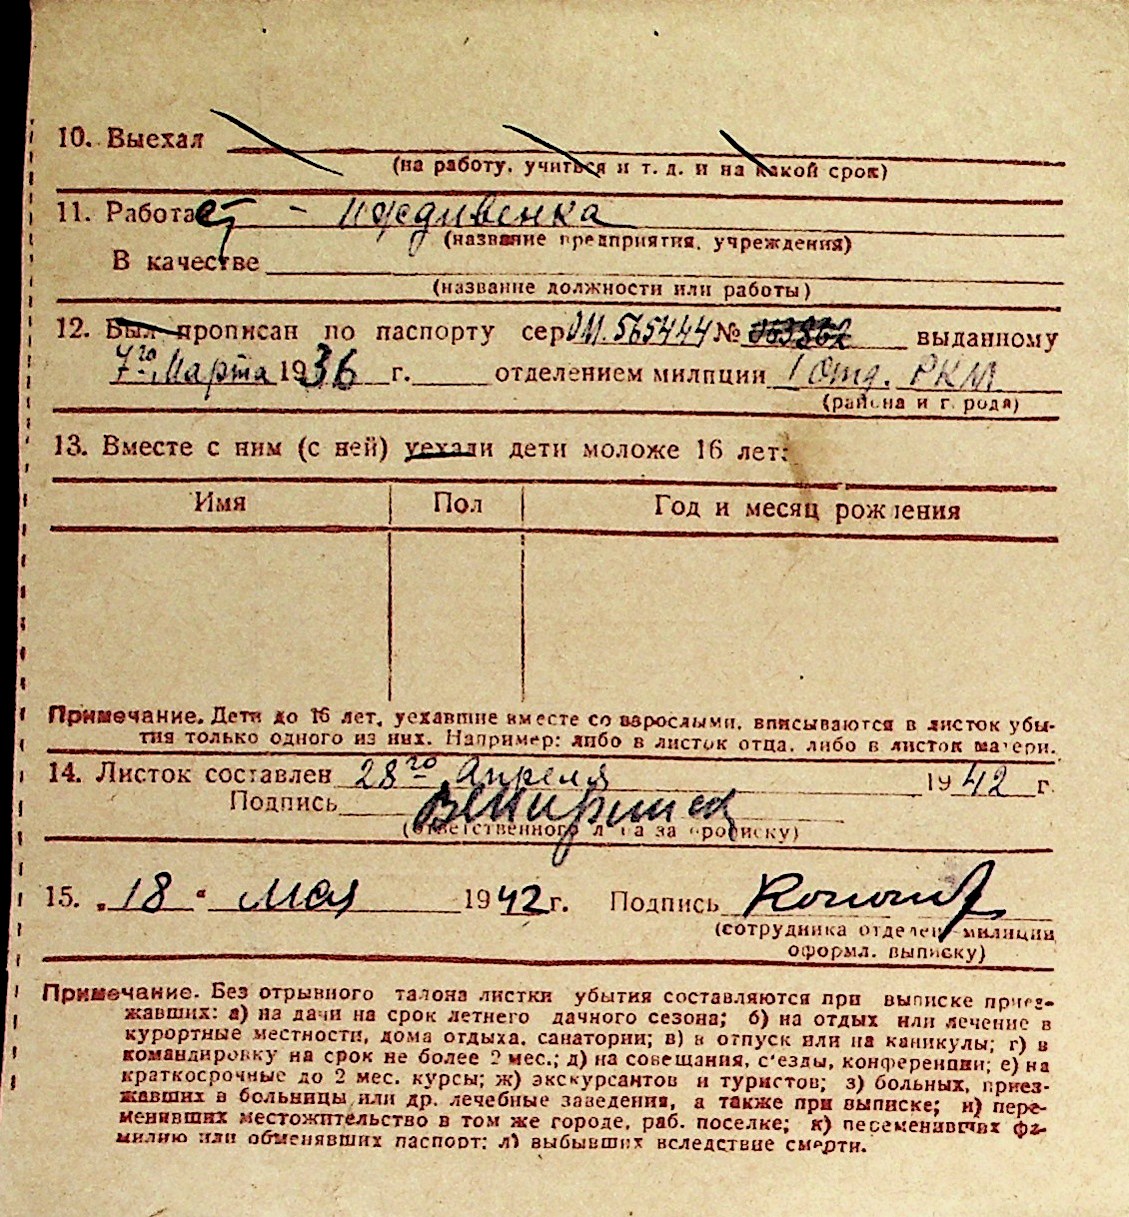 10. Выехал
(на работу, учиться и т. д. и на какой срок)
11. Работает - иждивенка
(название предприятия, учреждения)
В качестве
(название должности или работы)
12. Был прописан по паспорту сер. 565444 № выданному
7го Марта 1936 г. отделением милиции 1 Отд. РКМ
(района и города)
13. Вместе с ним (с ней) уехали дети моложе 16 лет:
Имя Пол Год и месяц рождения
Примечание. Дети до 16 лет, уехавшие вместе со взрослыми, вписываются в листок убы-
тия только одного из них. Например: либо в листок отца, либо в листок матери.
14. Листок составлен 28го Апреля 1942 г.
Подпись
(ответственного лица за прописку)
15. „18" Мая 1942 г. Подпись
(сотрудника отделен. милиции
оформл. выписку)
Примечание. Без отрывного талона листки убытия составляются при выписке приез-
жавших: а) на дачи на срок летнего дачного сезона; б) на отдых или лечение в
курортные местности, дома отдыха, санатории; в) в отпуск или на каникулы; г) в
командировку на срок не более 2 мес.; д) на совещания, с'езды, конференции; е) на
краткосрочные до 2 мес. курсы; ж) экскурсантов и туристов; з) больных, приез-
жавших в больницы или др. лечебные заведения, а также при выписке; и) пере-
менивших местожительство в том же городе, раб. поселке; к) переменивших фа-
милию или обменявших паспорт; л) выбывших вследствие смерти.